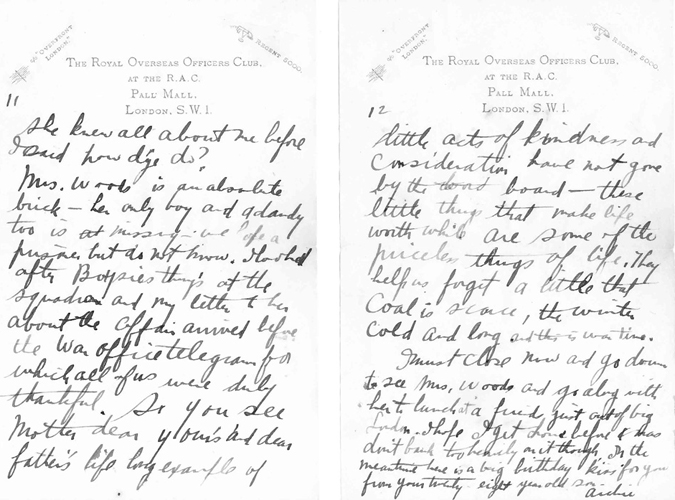 "OVERFRONT LONDON."
REGENT 5000.
THE ROYAL OVERSEAS OFFICERS CLUB,
AT THE R.A.C.
PALL MALL,
LONDON, S.W.1.
11
She knew all about me before
I said how d'ye do?
Mrs. Woods is an absolute
brick – her only boy and a dandy
too is missing – we hope a
prisoner but do not know. I looked
after Bopsies things at the
squadron and my letter to her
about the affair arrived before
the War office telegram for
which all of us were duly
thankful. So you see
Mother dear yours and dear
father's life long example of
"OVERFRONT LONDON."
REGENT 5000.
THE ROYAL OVERSEAS OFFICERS CLUB,
AT THE R.A.C.
PALL MALL,
LONDON, S.W.1.
12
little acts of kindness and
consideration have not gone
by the board – these
little things that make life
worth while are some of the
priceless things of life. They
help us forget a little that
Coal is scarce, the winter
cold and long and this is war time.
I must close now and go down
to see Mrs. Woods and go along with
her to lunch at a friend, just out of big
London. I hope I get home before Xmas
don't bank too heavily on it though. In the
meantime here is a big birthday kiss for you
from your twenty-eight year old son.
Archie